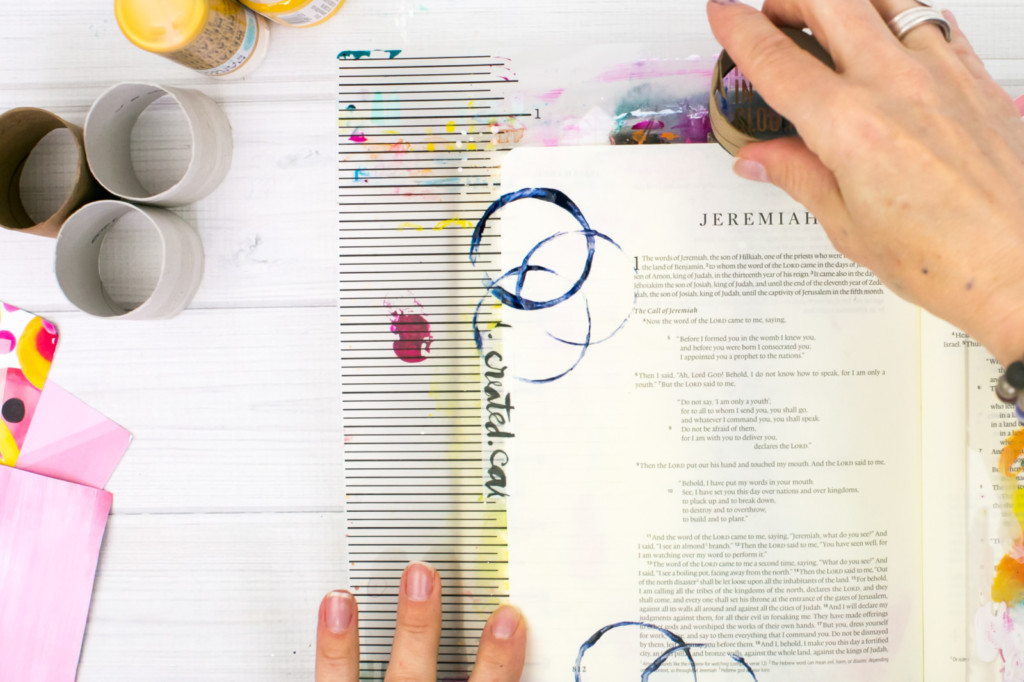 1
JEREMIAH
1 The words of Jeremiah, the son of Hilkiah, one of the priests who were
the land of Benjamin, ²to whom the word of the LORD came in the days of
son of Amon, king of Judah, in the thirteenth year of his reign. ³It came also in the
Jehoiakim the son of Josiah, king of Judah, and until the end of the eleventh year of
the son of Josiah, king of Judah, until the captivity of Jerusalem in the fifth month.
The Call of Jeremiah
⁴Now the word of the LORD came to me, saying,
⁵ "Before I formed you in the womb I knew you,
and before you were born I consecrated you;
I appointed you a prophet to the nations."
⁶Then I said, "Ah, Lord GOD! Behold, I do not know how to speak, for I am only a
youth." ⁷But the LORD said to me,
"Do not say, 'I am only a youth';
for to all to whom I send you, you shall go,
and whatever I command you, you shall speak.
⁸ Do not be afraid of them,
for I am with you to deliver you,
declares the LORD."
⁹Then the LORD put out his hand and touched my mouth. And the LORD said to me,
"Behold, I have put my words in your mouth.
¹⁰ See, I have set you this day over nations and over kingdoms,
to pluck up and to break down,
to destroy and to overthrow,
to build and to plant."
¹¹And the word of the LORD came to me, saying, "Jeremiah, what do you see?" And
I said, "I see an almond branch." ¹²Then the LORD said to me, "You have seen well, for
I am watching over my word to perform it."
¹³The word of the LORD came to me a second time, saying, "What do you see?" And
I said, "I see a boiling pot, facing away from the north." ¹⁴Then the LORD said to me, "Out
of the north disaster shall be let loose upon all the inhabitants of the land. ¹⁵For behold,
I am calling all the tribes of the kingdoms of the north, declares the LORD, and they
shall come, and every one shall set his throne at the entrance of the gates of Jerusalem,
against all its walls all around and against all the cities of Judah. ¹⁶And I will declare my
judgments against them, for all their evil in forsaking me. They have made offerings
to other gods and worshiped the works of their own hands. ¹⁷But you, dress yourself
for work; and say to them everything that I command you. Do not be dismayed
by them, before them. ¹⁸And I, behold, I make you this day a fortified
city, an and bronze walls, against the whole land, against the kings of Judah,
812
created.